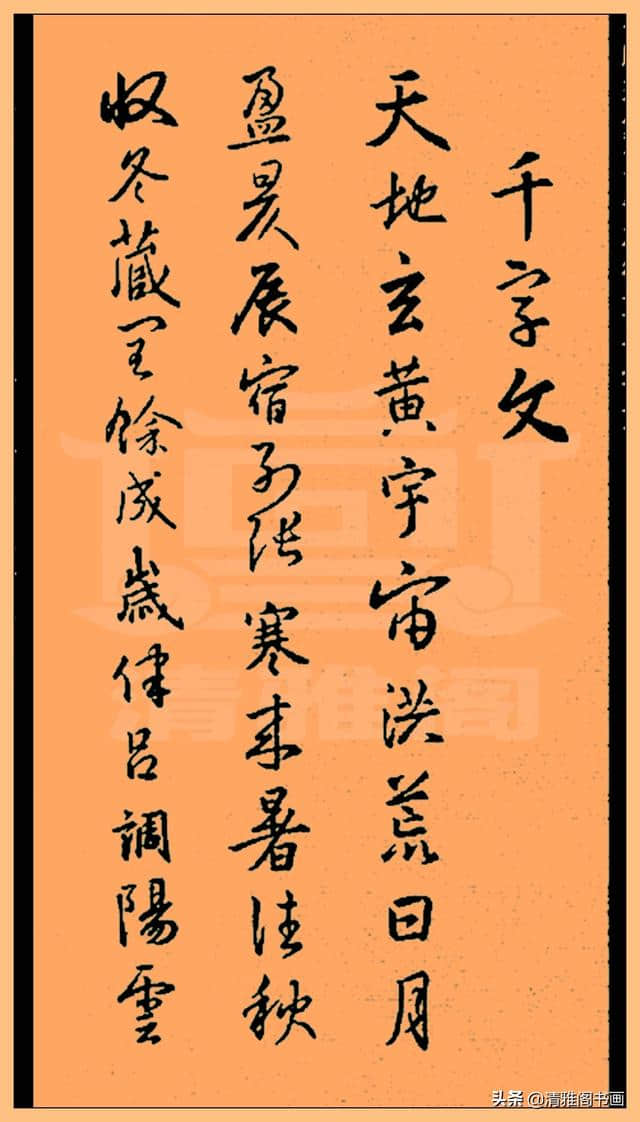 千字文
天地玄黄宇宙洪荒日月
盈昃辰宿列張寒来暑往秋
收冬藏閏餘成歲律吕調陽雲
清雅阁
头条 @清雅阁书画